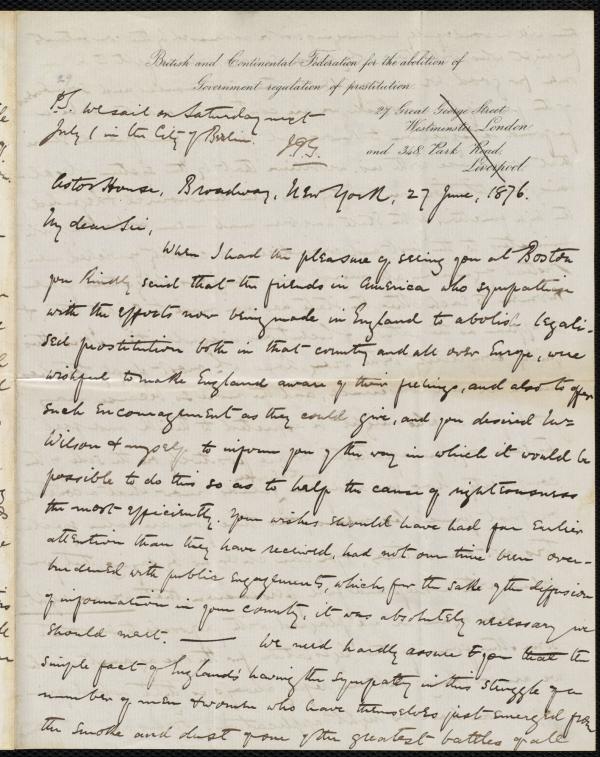 British and Continental Federation for the abolition of
Government regulation of prostitution
27 Great George Street
Westminster London
and 348 Park Road,
Liverpool
P.S. we sail on Saturday next
July 1 in the City of Berlin.
J.P.G.
Astor House, Broadway, New York, 27 June, 1876.
My dear Sir,
When I had the pleasure of seeing you at Boston
you kindly said that the friends in America who sympathise
with the efforts now being made in England to abolish legali-
sed prostitution both in that country and all over Europe, were
wishful to make England aware of their feelings, and also to offer
such encouragement as they could give, and you desired Mr
Wilson & myself to inform you of the way in which it would be
possible to do this so as to help the cause of righteousness
the most efficiently. Your wishes should have had far earlier
attention than they have received, had not our time been over-
burdened with public engagements, which, for the sake of the diffusion
of information in your country, it was absolutely necessary we
should meet. — We need hardly assure you that the
simple fact of England's having the sympathy in this struggle of a
number of men & women who have themselves just emerged from
the smoke and dust of one of the greatest battles of all